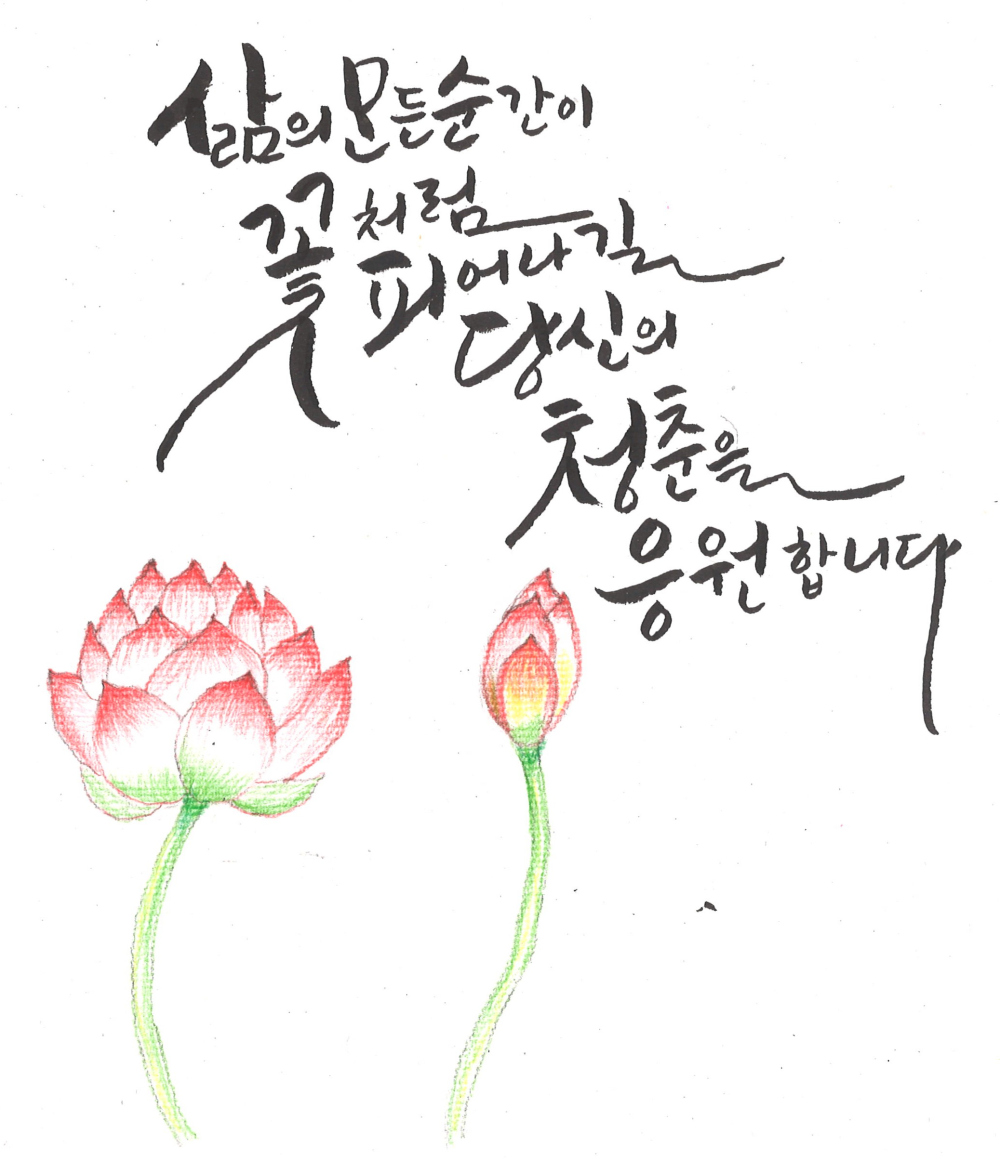 삶의 모든 순간이
꽃처럼
피어나길
당신의
청춘을
응원합니다